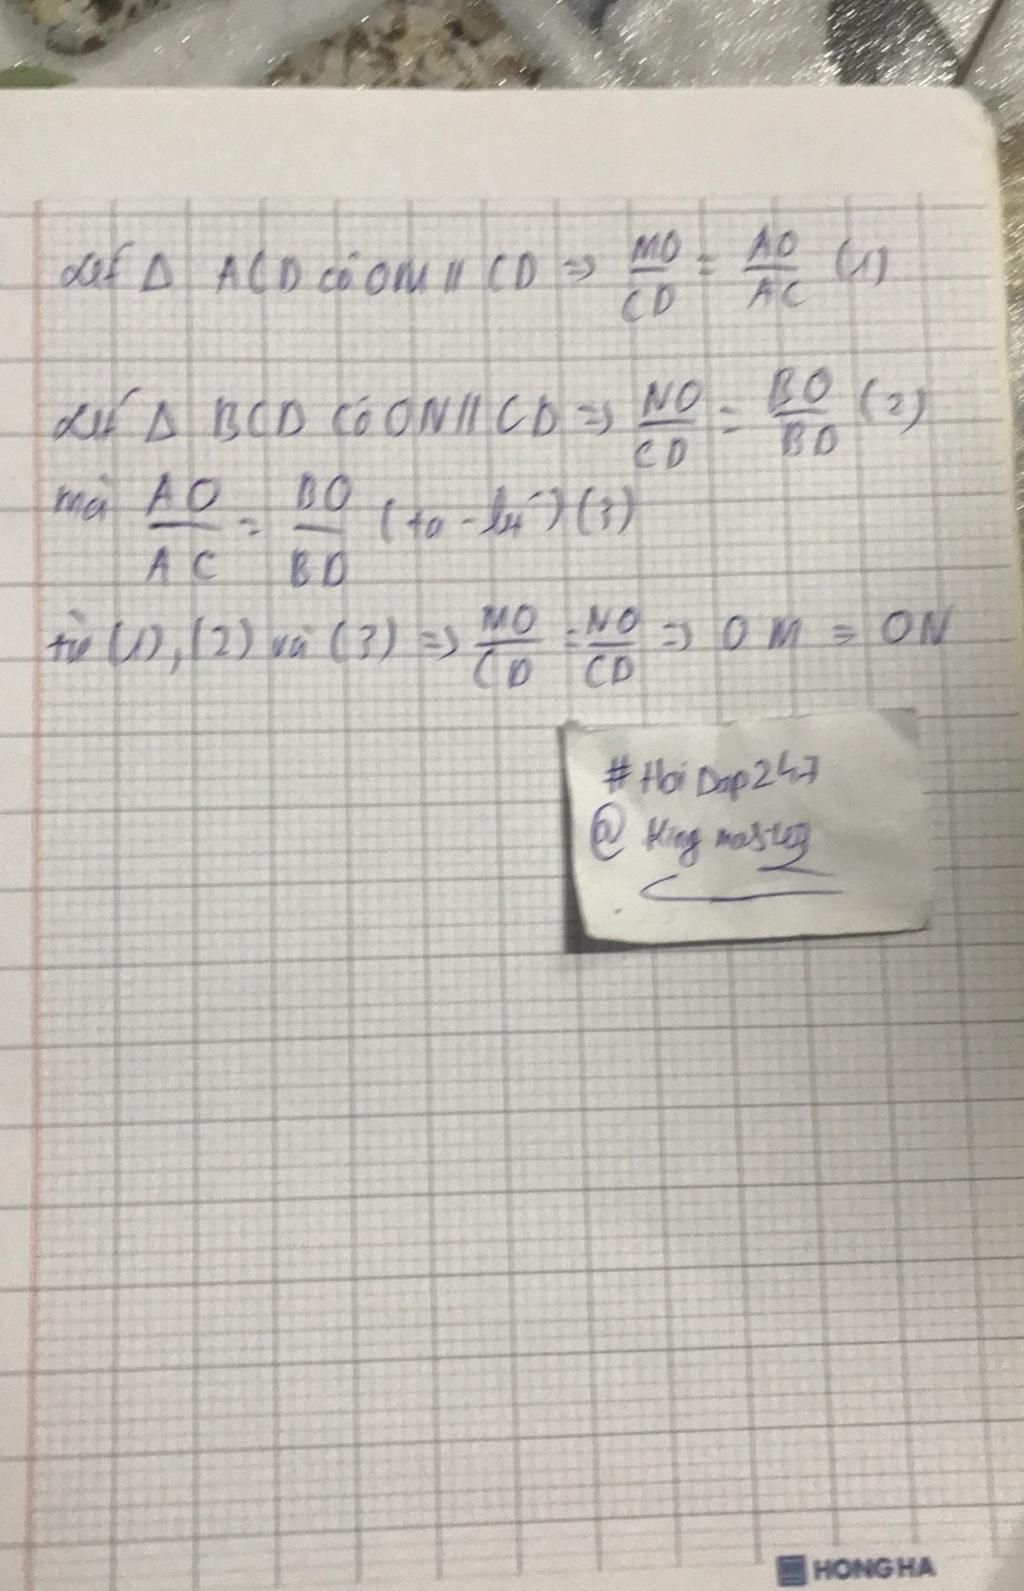 xét Δ ACD có OM // CD => MO/CD = AO/AC (1)
xét Δ BCD có ON // CD => NO/CD = BO/BD (2)
mà AO/AC = BO/BD (ta-lét) (3)
từ (1), (2) và (3) => MO/CD = NO/CD => OM = ON
#HoiDap247
@ King
HONG HA